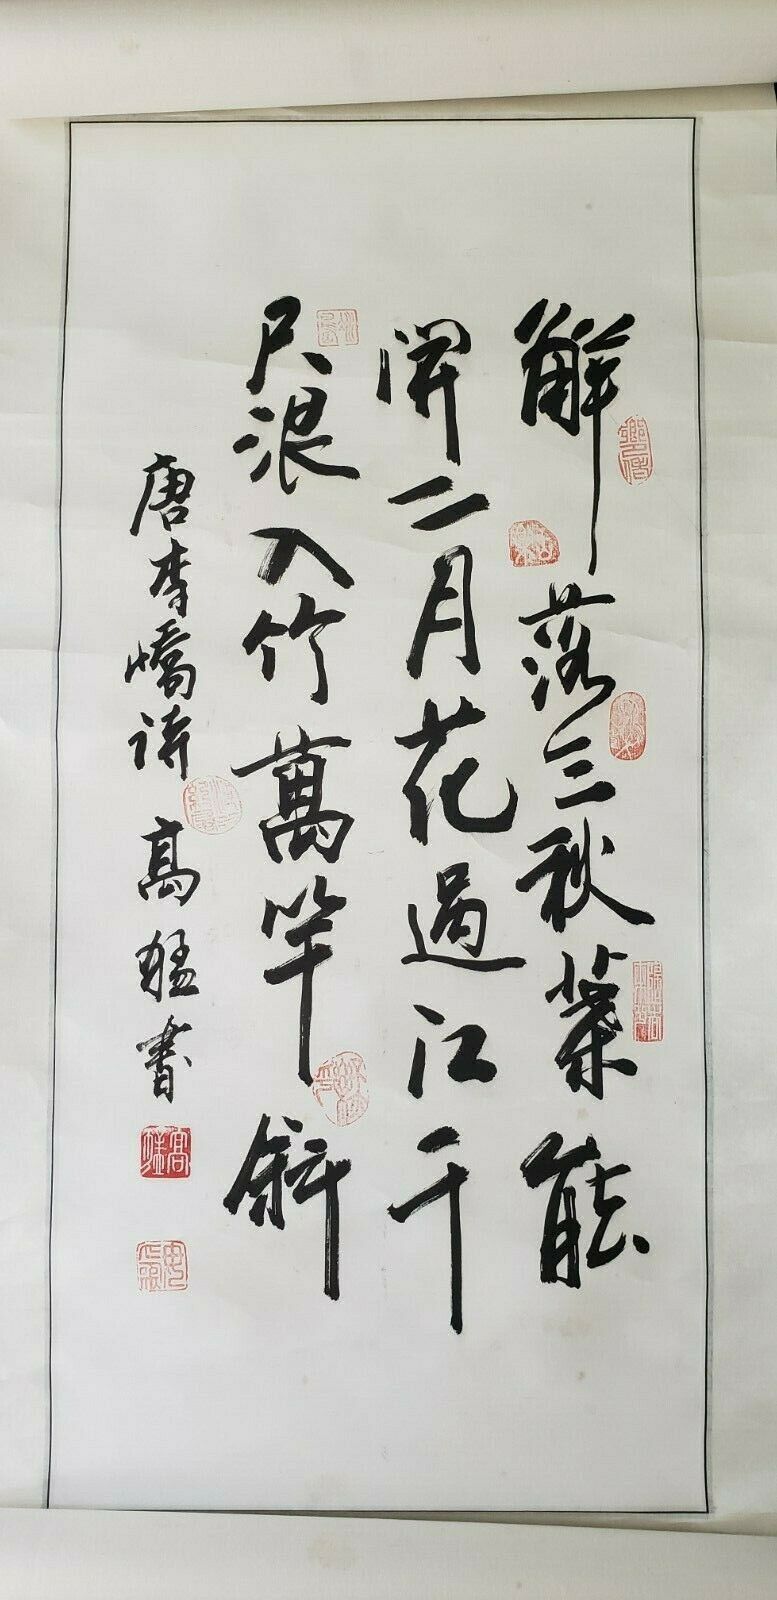 解落三秋葉能
開二月花過江千
尺浪入竹萬竿斜
唐李嶠詩 高猛書